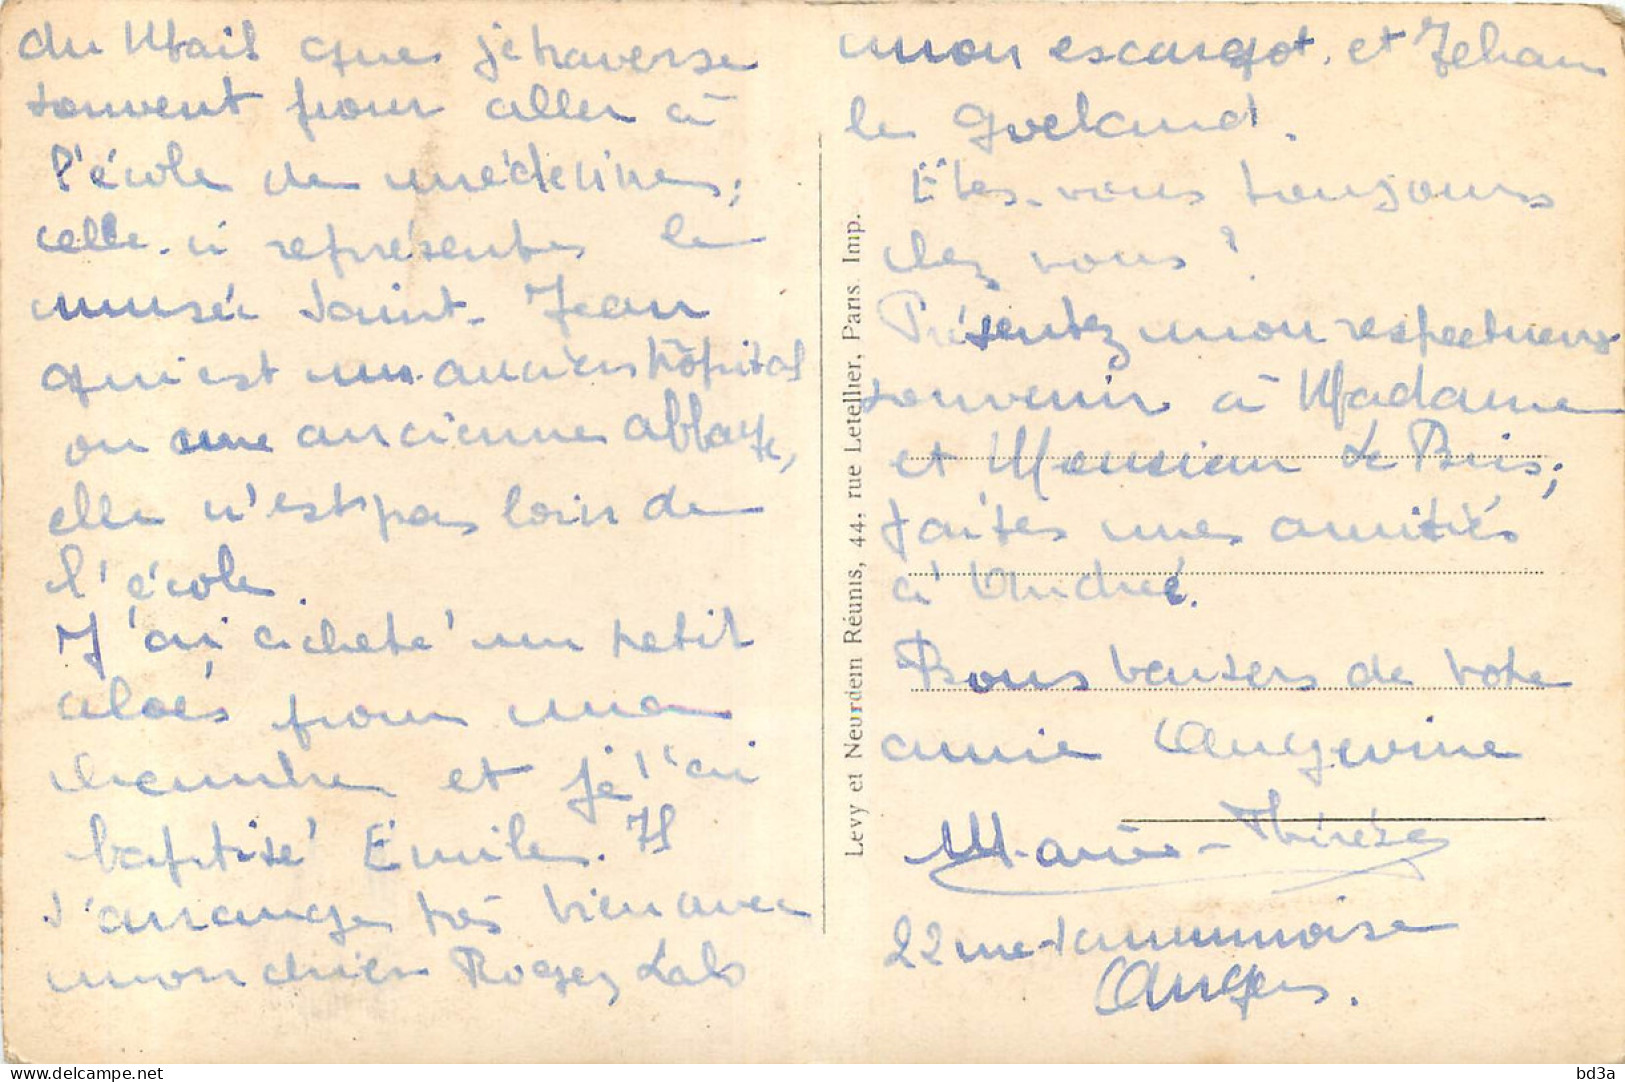 du Mail que je traverse
souvent pour aller à
l'école de médecine;
celle-ci représente le
musée Saint-Jean
qui est un ancien hôpital
ou une ancienne abbaye,
elle n'est pas loin de
l'école.
J'ai acheté un petit
aloès pour ma
chambre et je l'ai
baptisé Emile. Il
s'arrange très bien avec
mon chien Roger Lab
mon escargot et Jehan
le goeland.
Êtes-vous toujours
chez vous?
Présentez mon respectueux
souvenir à Madame
et Monsieur Le Bris;
faites mes amitiés
à Andrée.
Bons baisers de votre
amie Angevine
Marie-Thérèse
22 rue
Angers.
Levy et Neurdein Réunis, 44, rue Letellier, Paris. Imp.
delcampe.net
bd3a